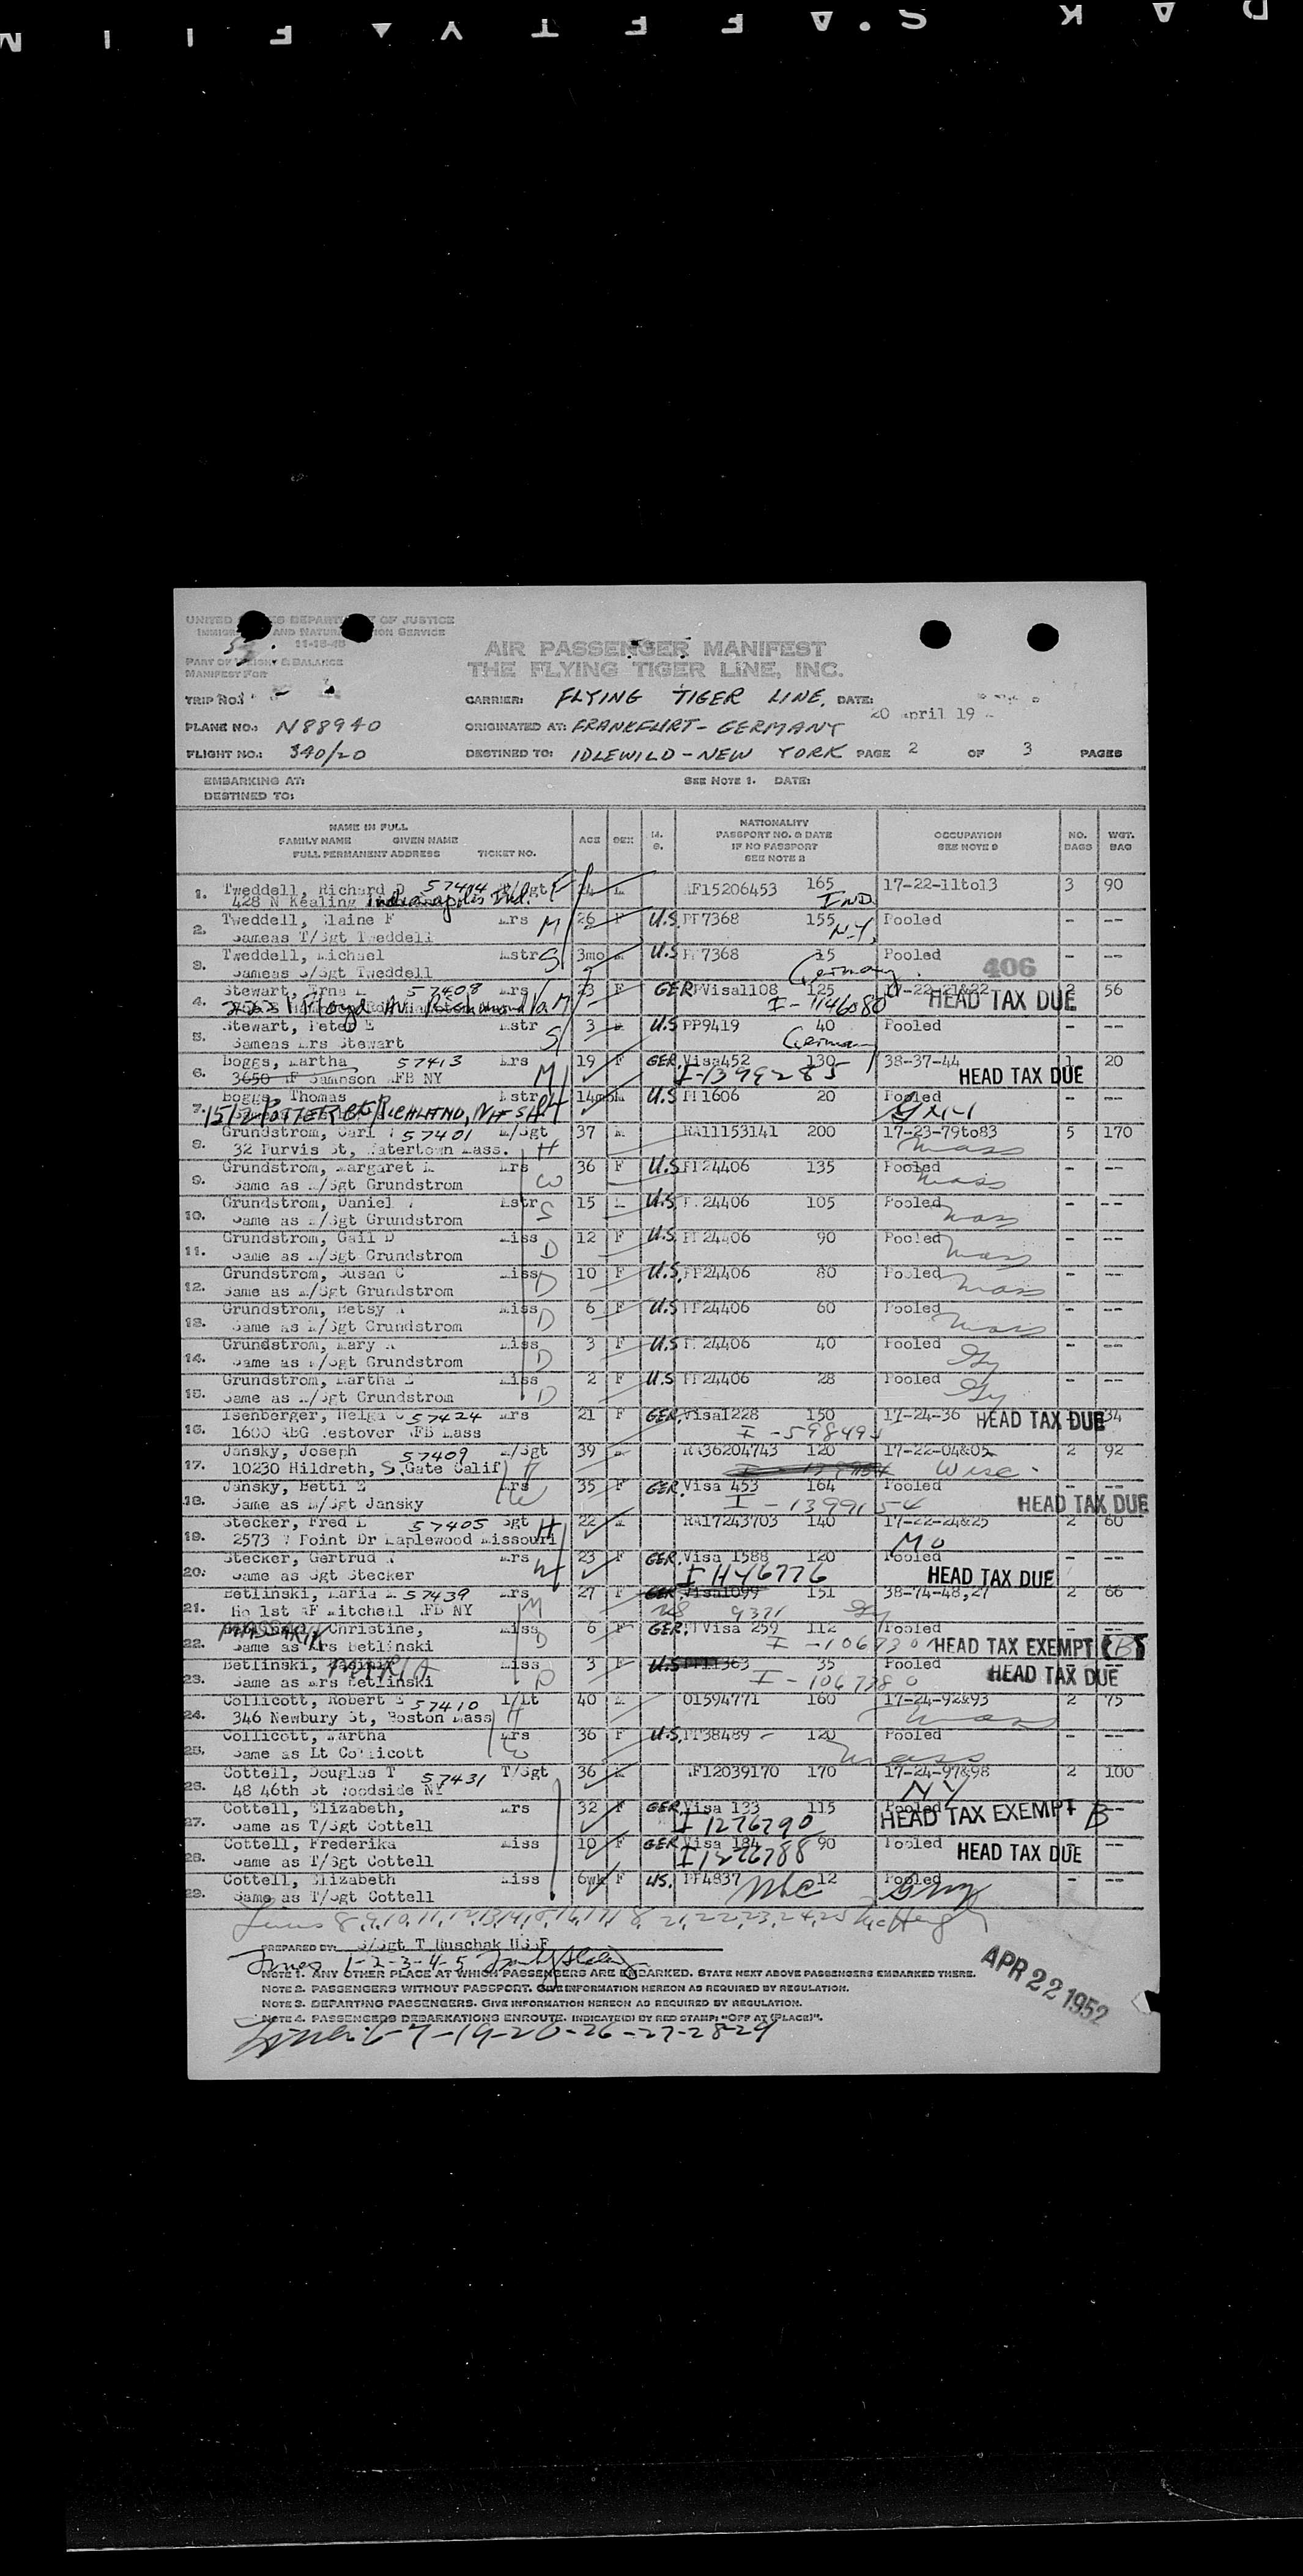 UNITED STATES DEPARTMENT OF JUSTICE
IMMIGRATION AND NATURALIZATION SERVICE
11-15-45
PART OF WEIGHT & BALANCE
MANIFEST FOR
AIR PASSENGER MANIFEST
THE FLYING TIGER LINE, INC.
TRIP NO.: CARRIER: FLYING TIGER LINE, DATE: 20 April 19
PLANE NO.: N88940 ORIGINATED AT: FRANKFURT-GERMANY
FLIGHT NO.: 390/20 DESTINED TO: IDLEWILD-NEW YORK PAGE 2 OF 3 PAGES
EMBARKING AT: SEE NOTE 1. DATE:
DESTINED TO:
NAME IN FULL
FAMILY NAME GIVEN NAME
FULL PERMANENT ADDRESS TICKET NO.
AGE SEX M. S.
NATIONALITY
PASSPORT NO. & DATE
IF NO PASSPORT
SEE NOTE 2
OCCUPATION
SEE NOTE 3
NO. BAGS
WGT. BAG
1. Tweddell, Richard D 57414 24 M AF15206453 165 17-22-11to13 3 90
428 N Kealing Indianapolis Ind. IND
2. Tweddell, Elaine F Mrs M 26 F U.S PP7368 155 Pooled - --
Sameas T/Sgt Tweddell N.Y.
3. Tweddell, Michael Mstr S 3mo M U.S PP7368 15 Pooled - --
Sameas S/Sgt Tweddell Germany 406
4. Stewart, Erna 57408 Mrs M 23 F GER PPVisa1108 125 17-22-21&22 2 56
Floyd Av. Richmond Va I-1146080 HEAD TAX DUE
5. Stewart, Peter E Mstr S 3 M U.S PP9419 40 Pooled - --
Sameas Mrs Stewart German
6. Boggs, Martha 57413 Mrs M 19 F GER. Visa452 130 38-37-44 1 20
3650 AF Sampson AFB NY I-1399285 HEAD TAX DUE
7. Boggs, Thomas Mstr 14mo M U.S PP1606 20 Pooled - --
1512 POTTER RICHLAND, WASH
8. Grundstrom, Carl 57401 M/Sgt H 37 M RA11153141 200 17-23-79to83 5 170
32 Purvis St, Watertown Mass. Mass
9. Grundstrom, Margaret M Mrs W 36 F U.S PP24406 135 Pooled - --
Same as M/Sgt Grundstrom Mass
10. Grundstrom, Daniel Mstr S 15 M U.S PP24406 105 Pooled - --
Same as M/Sgt Grundstrom Mass
11. Grundstrom, Gail D Miss D 12 F U.S PP24406 90 Pooled - --
Same as M/Sgt Grundstrom Mass
12. Grundstrom, Susan C Miss D 10 F U.S. PP24406 80 Pooled - --
Same as M/Sgt Grundstrom Mass
13. Grundstrom, Betsy Miss D 6 F U.S PP24406 60 Pooled - --
Same as M/Sgt Grundstrom Mass
14. Grundstrom, Mary Miss D 3 F U.S PP24406 40 Pooled - --
Same as M/Sgt Grundstrom Gy
15. Grundstrom, Martha E Miss D 2 F U.S PP24406 28 Pooled - --
Same as M/Sgt Grundstrom Gy
16. Isenberger, Helga 57424 Mrs 21 F GER. Visa1228 150 17-24-36 HEAD TAX DUE 34
1600 ABG Westover AFB Mass I-598495
17. Jansky, Joseph 57409 M/Sgt H 39 M RA36204743 120 17-22-04&05 2 92
10230 Hildreth, S.Gate Calif Wisc.
18. Jansky, Betti E Mrs W 35 F GER. Visa 453 164 Pooled - --
Same as M/Sgt Jansky I-1399154 HEAD TAX DUE
19. Stecker, Fred E 57405 Sgt H 22 M RA17243703 140 17-22-24&25 2 60
2573 W Point Dr Maplewood Missouri Mo
20. Stecker, Gertrud Mrs W 23 F GER. Visa 1588 120 Pooled - --
Same as Sgt Stecker I 1146776 HEAD TAX DUE
21. Betlinski, Maria M 57439 Mrs M 27 F GER Visa1099 151 38-74-48,27 2 66
Hq 1st AF Mitchell AFB NY US 9371 Gy
22. Christine, Miss D 6 F GER. PPVisa 259 112 Pooled - --
Same as Mrs Betlinski I-1067301 HEAD TAX EXEMPT B
23. Betlinski, MARIA Miss D 3 F U.S PP11363 35 Pooled - --
Same as Mrs Betlinski I-1067380 HEAD TAX DUE
24. Collicott, Robert E 57410 1/Lt H 40 M O1594771 160 17-24-92&93 2 75
346 Newbury St, Boston Mass Mass
25. Collicott, Martha Mrs W 36 F U.S. PP38489 120 Pooled - --
Same as Lt Collicott Mass
26. Cottell, Douglas T 57431 T/Sgt 36 M AF12039170 170 17-24-97&98 2 100
48 46th St Woodside NY NY
27. Cottell, Elizabeth, Mrs 32 F GER Visa 133 115 Pooled --
Same as T/Sgt Cottell I 1276790 HEAD TAX EXEMPT B
28. Cottell, Frederika Miss 10 F GER Visa 184 90 Pooled - --
Same as T/Sgt Cottell I 1276788 HEAD TAX DUE
29. Cottell, Elizabeth Miss 6wk F US. PP4837 12 Pooled - --
Same as T/Sgt Cottell
Lines 8,9,10,11,12,13,14,15,16,17,18, 21,22,23,24,25
PREPARED BY: S/Sgt T Ruschak USAF
Lines 1-2-3-4-5
NOTE 1. ANY OTHER PLACE AT WHICH PASSENGERS ARE EMBARKED. STATE NEXT ABOVE PASSENGERS EMBARKED THERE.
NOTE 2. PASSENGERS WITHOUT PASSPORT. GIVE INFORMATION HEREON AS REQUIRED BY REGULATION.
NOTE 3. DEPARTING PASSENGERS. GIVE INFORMATION HEREON AS REQUIRED BY REGULATION.
NOTE 4. PASSENGERS DEBARKATIONS ENROUTE. INDICATE(D) BY RED STAMP: "OFF AT (PLACE)".
Lines 6-7-19-20-26-27-28-29
APR 22 1952